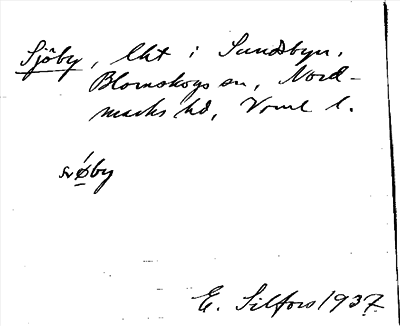 Sjöby, lht i Sundsbyn,
Blomskogs sn, Nord-
marks hd, Vrml l.
E. Silfors 1937.